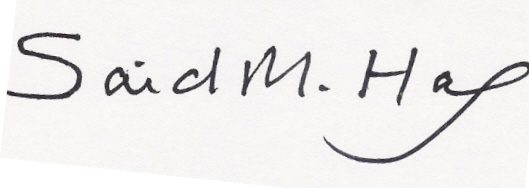 Said M. Hay